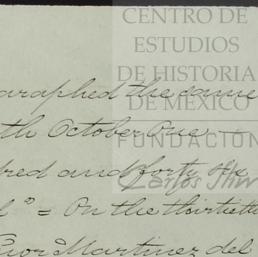 CENTRO DE
ESTUDIOS
DE HISTORIA
DE MÉXICO
FUNDACIÓN
Carlos Slim
araphed the same
th October One
red and forty six
l" = On the thirtieth
Martinez del